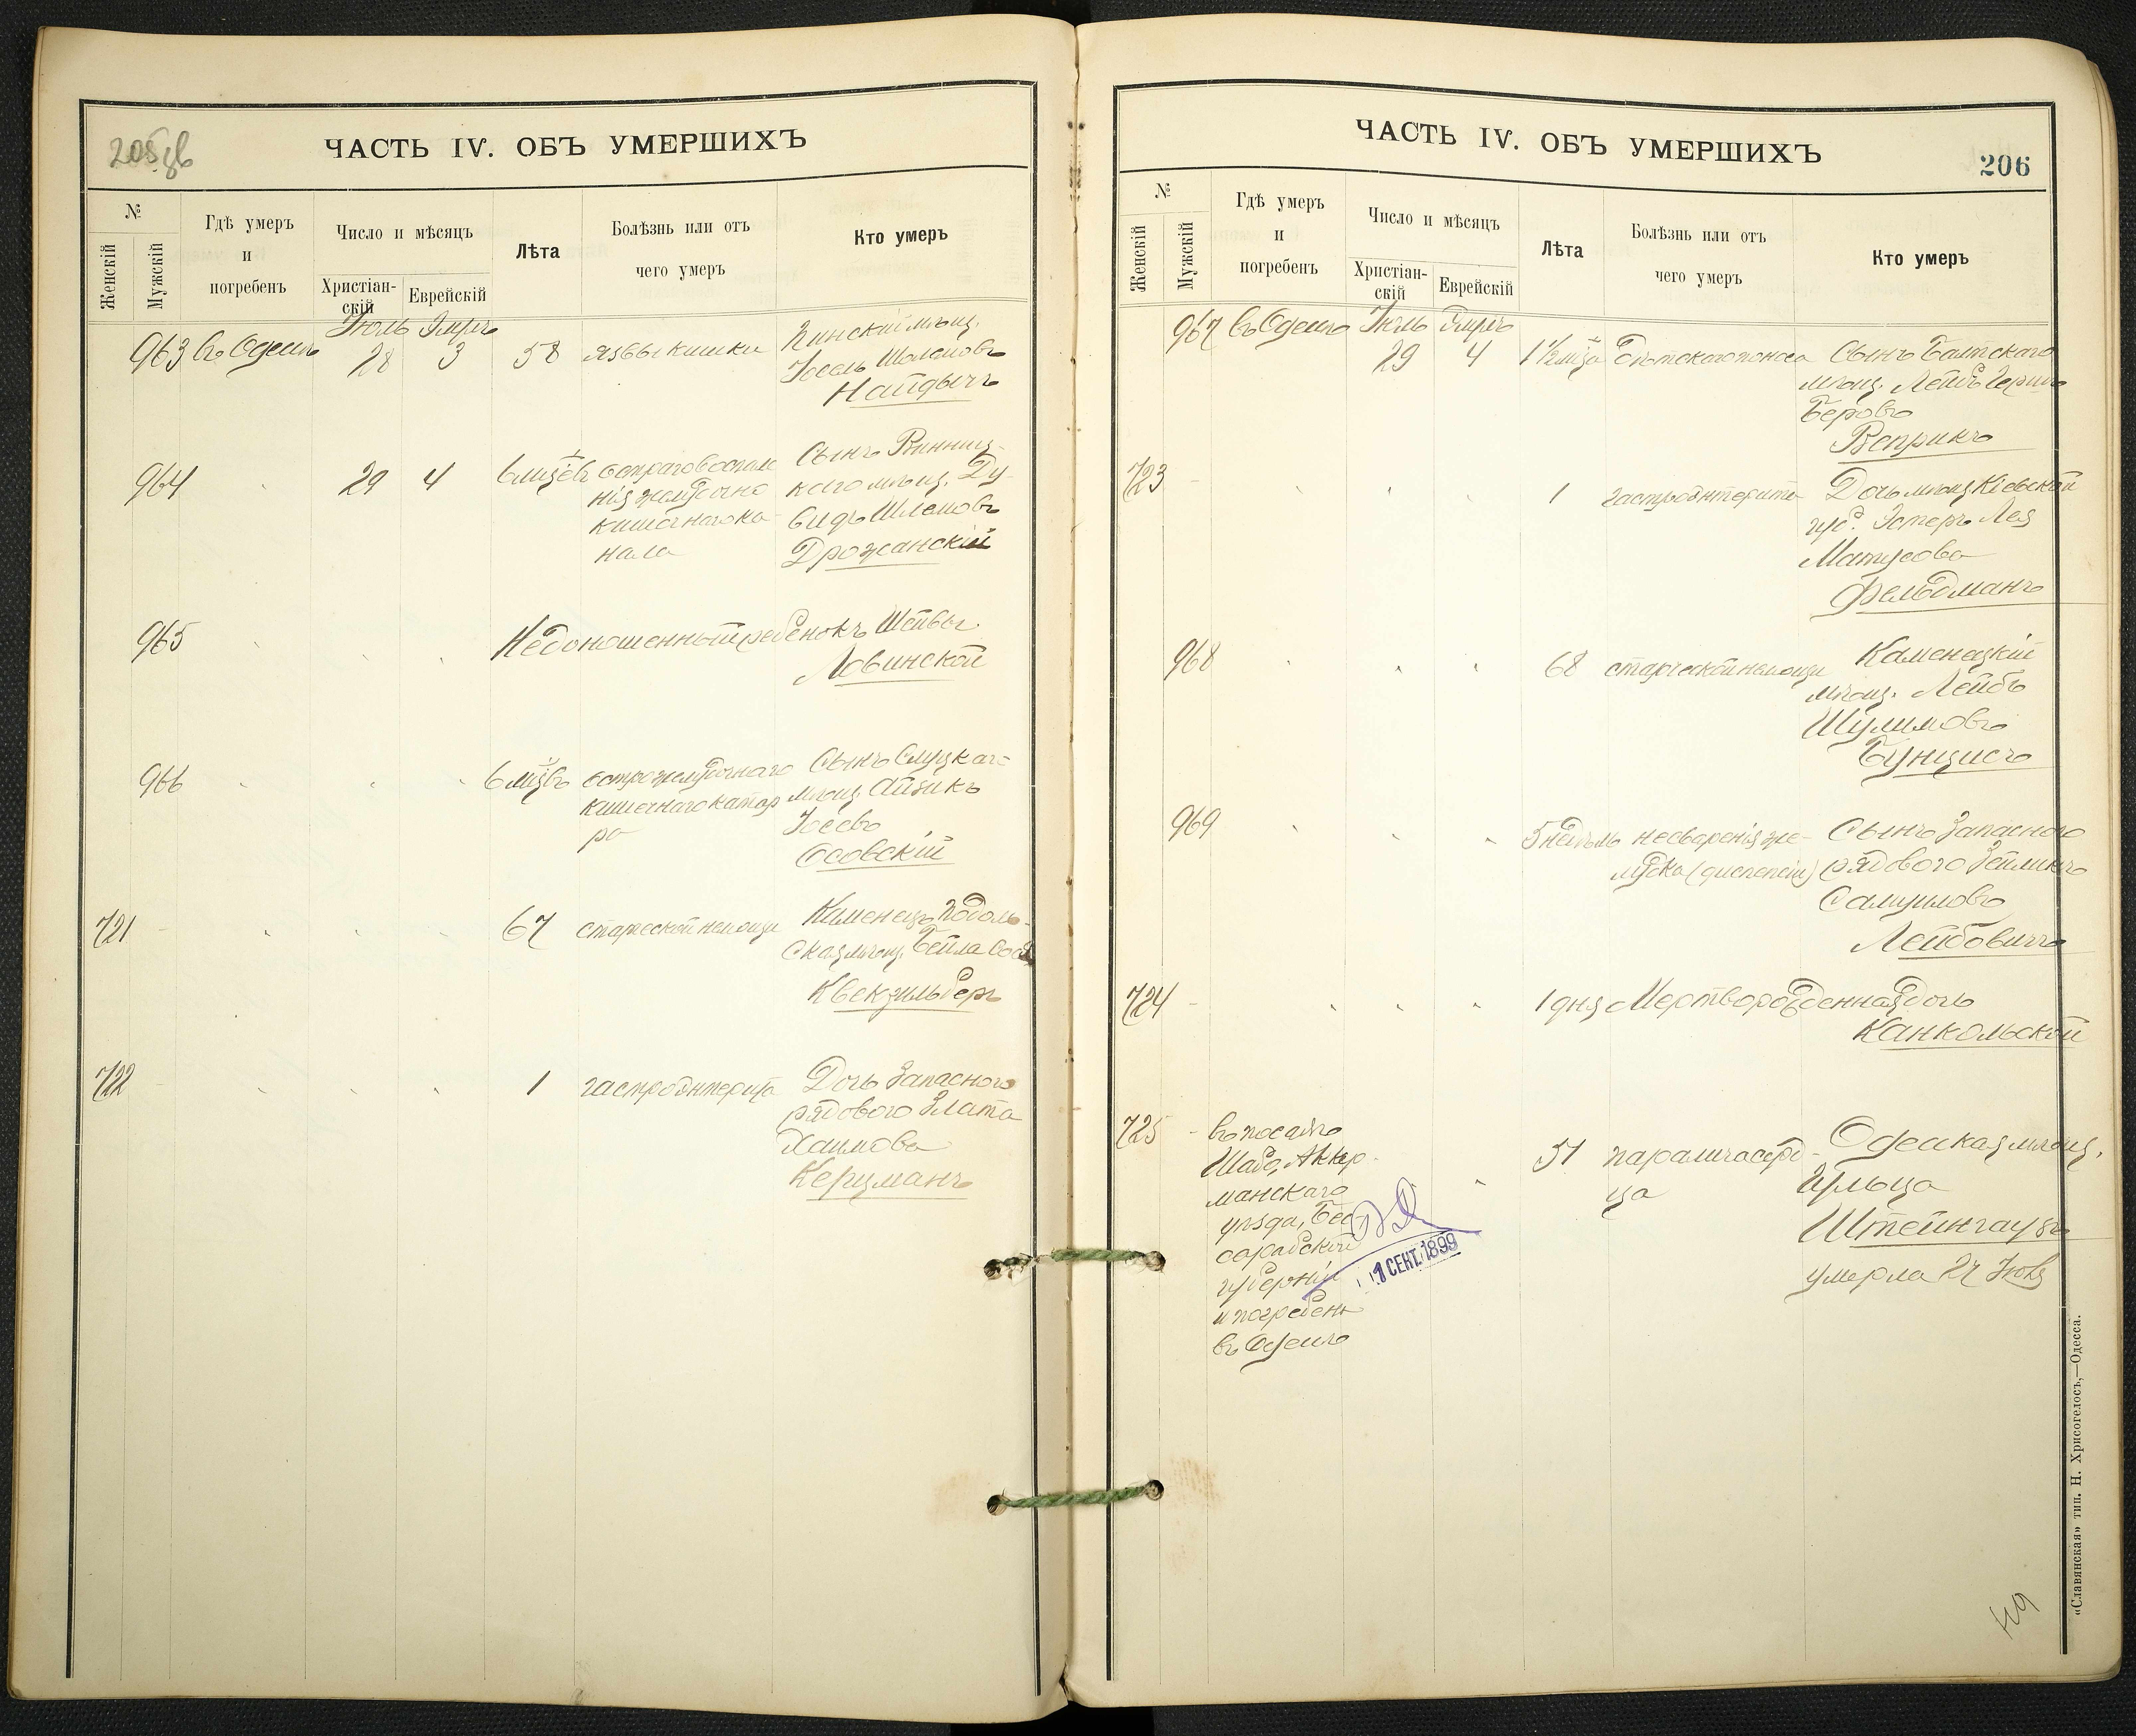 205 об
ЧАСТЬ IV. ОБЪ УМЕРШИХЪ
№
Женскій
Мужскій
Гдѣ умеръ
и
погребенъ
Число и мѣсяцъ
Христіан-
скій
Еврейскій
Лѣта
Болѣзнь или отъ
чего умеръ
Кто умеръ
Іюль
963 въ Одессѣ 28 3 58 язвы кишки
Пинскій мѣщ.
Іосель Шлемовъ
Найдичъ
964 29 4 6 мѣсцевъ
остраго воспале
нія желудочно
кишечнаго ка
нала
Сынъ Винниц-
каго мѣщ. Ду-
видъ Шлемовъ
Дрожанскій
965 Недоношенный ребенокъ Шейвы
Ловинской
966 6 мѣсцевъ
остро желудочнаго
кишечнаго катар
ра
Сынъ Слуцкаго
мѣщ. Айзикъ
Іосевъ
Осовскій
721 67 старческой немощи
Каменецъ Подоль-
ская мѣщ. Бейла Сося
Квекзильберъ
722 1 гастроэнтерита
Дочь Запаснаго
рядового Злата
Хаимова
Керцманъ
ЧАСТЬ IV. ОБЪ УМЕРШИХЪ
206
№
Женскій
Мужскій
Гдѣ умеръ
и
погребенъ
Число и мѣсяцъ
Христіан-
скій
Еврейскій
Лѣта
Болѣзнь или отъ
чего умеръ
Кто умеръ
Іюль
967 въ Одессѣ 29 4 1½ мѣсца дѣтскаго поноса
Сынъ Балтскаго
мѣщ. Лейбъ Гершъ
Беровъ
Веприкъ
723 1 гастроэнтерита
Дочь мѣщ Кіевской
губ. Эстеръ Лея
Матусова
Фельдманъ
968 68 старческой немощи
Каменецкій
мѣщ. Лейбъ
Шулимовъ
Бунцисъ
969 5 недѣль
несваренія же-
лудка (диспепсіи)
Сынъ Запаснаго
рядового Зейликъ
Самуиловъ
Лейбовичъ
724 1 дня Мертворожденная дочь
Канкольской
725 въ посадѣ
Шабо, Аккер-
манскаго
уѣзда, Бес-
сарабской
губерніи
и погребен
въ Одессѣ
51 паралича серд-
ца
Одесская мѣщ.
Штейнгаузъ
умерла 27 Іюля
1 СЕНТ. 1899
«Славянская» тип. Н. Хрисогелосъ,—Одесса.